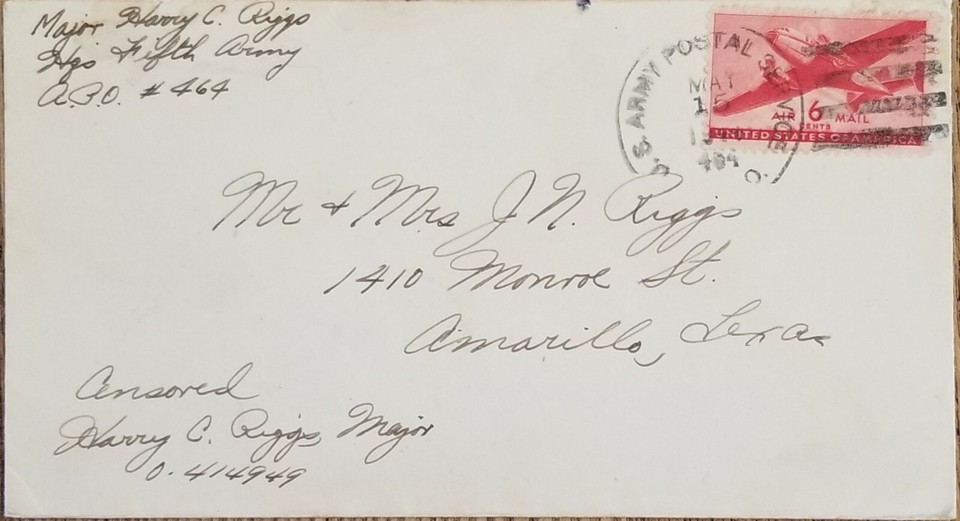 Major Harry C. Riggs
Hqs Fifth Army
A.P.O. # 464
U.S. ARMY POSTAL SERVICE
MAY
15
464
AIR 6 MAIL
CENTS
UNITED STATES OF AMERICA
Mr & Mrs J. N. Riggs
1410 Monroe St.
Amarillo, Texas
Censored
Harry C. Riggs, Major
O-414949